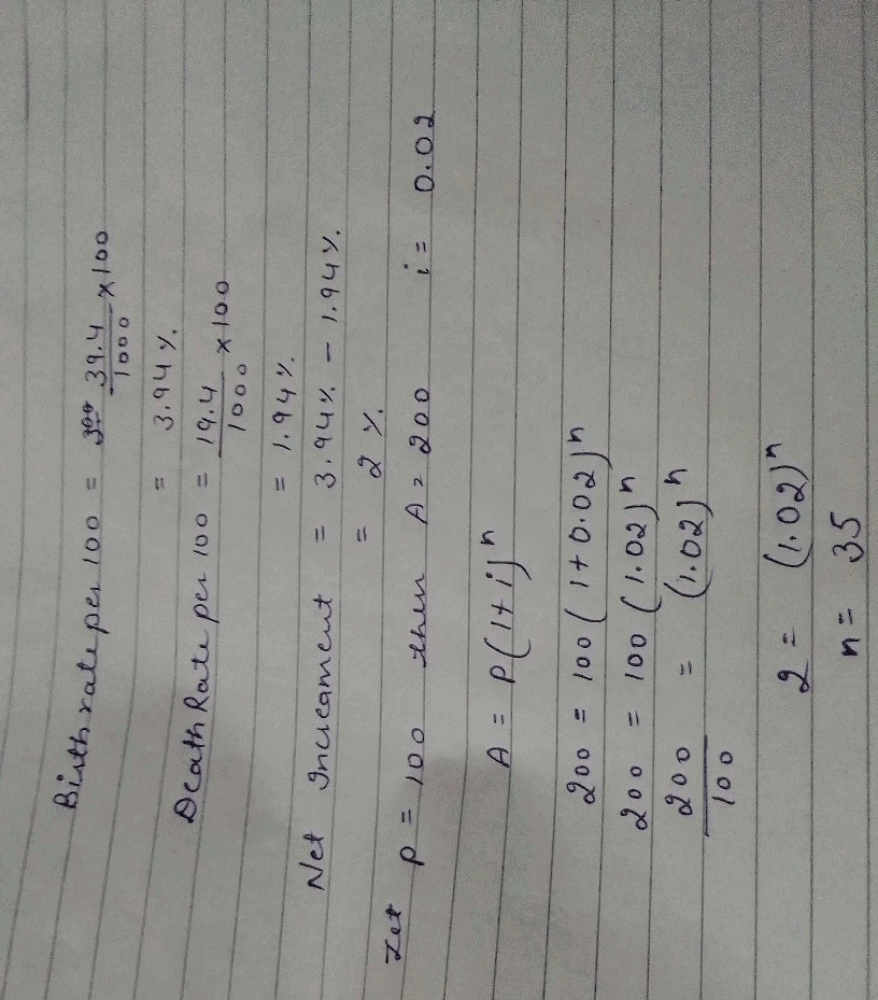 Birth rate per 100 = 39.4/1000 × 100
= 3.94%.
Death Rate per 100 = 19.4/1000 × 100
= 1.94%.
Net Increament = 3.94% - 1.94%.
= 2%.
Let P = 100 then A = 200 i = 0.02
A = P(1+i)ⁿ
200 = 100(1+0.02)ⁿ
200 = 100(1.02)ⁿ
200/100 = (1.02)ⁿ
2 = (1.02)ⁿ
n = 35